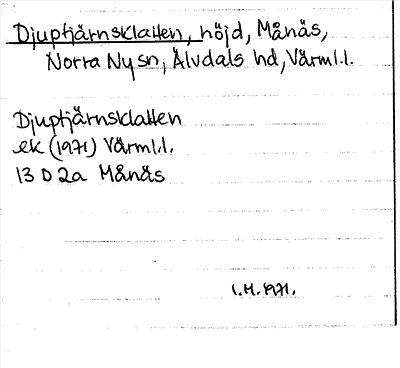 Djuptjärnsklatten, höjd, Månäs,
Norra Ny sn, Älvdals hd, Värml.l.
Djuptjärnsklatten
ek (1971) Värml.l.
13 D 2a Månäs
I.H. 1971.